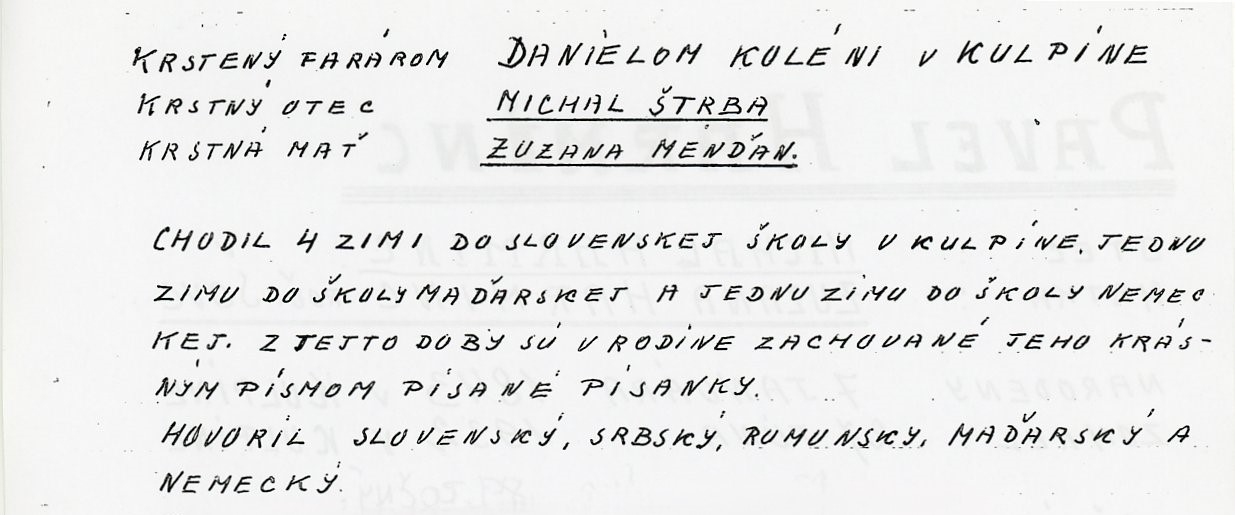 KRSTENÝ FARÁROM DANIELOM KOLÉNI V KULPÍNE
KRSTNÝ OTEC MICHAL ŠTRBA
KRSTNÁ MAŤ ZUZANA MENĎAN.
CHODIL 4 ZIMI DO SLOVENSKEJ ŠKOLY V KULPÍNE, JEDNU
ZIMU DO ŠKOLY MAĎARSKEJ A JEDNU ZIMU DO ŠKOLY NEMEC
KEJ. Z TEJTO DOBY SÚ V RODINE ZACHOVANÉ JEHO KRÁS-
NÝM PÍSMOM PÍSANÉ PÍSANKY.
HOVORIL SLOVENSKÝ, SRBSKÝ, RUMUNSKY, MAĎARSKÝ A
NEMECKÝ.